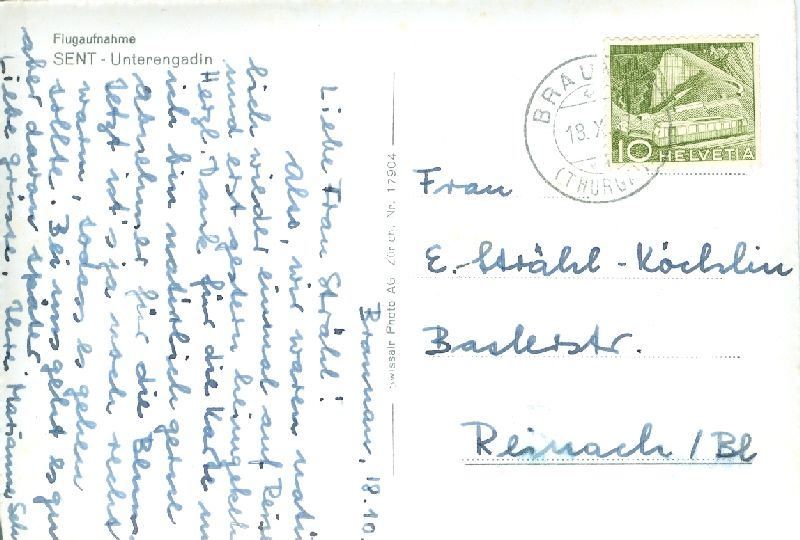 Flugaufnahme
SENT - Unterengadin
Braunau, 18.10.
Liebe Frau Strähl!
Also, wir waren natür
lich wieder einmal auf Reis
und erst gestern heimgekeh
Herzl. Dank für die Karte u
ich bin natürlich gerne
Abnehmer für die Blum
Jetzt ist's ja noch recht
warm, sodass es gehen
sollte. Bei uns geht es gu
aber davon später.
Liebe Grüsse, Ihre Marianne
Swissair Photo AG Zürich, Nr. 17904
BRAU
18. X
(THURGAU)
10 HELVETIA
Frau
E. Strähl-Köchlin
Baslerstr.
Reinach / Bl